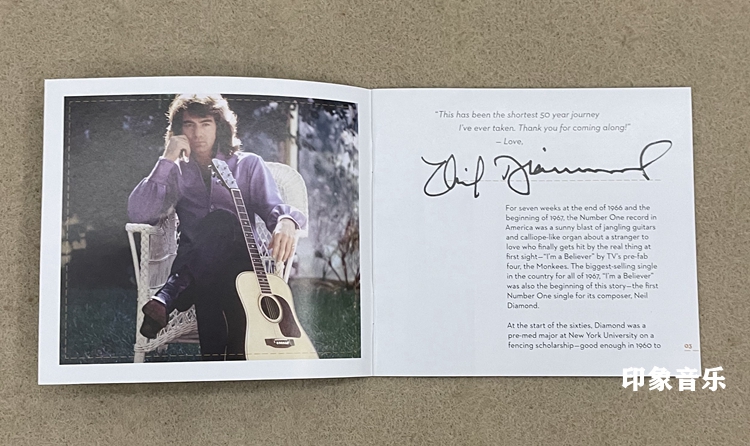 "This has been the shortest 50 year journey
I've ever taken. Thank you for coming along!"
– Love,
Neil Diamond
For seven weeks at the end of 1966 and the
beginning of 1967, the Number One record in
America was a sunny blast of jangling guitars
and calliope-like organ about a stranger to
love who finally gets hit by the real thing at
first sight—"I'm a Believer" by TV's pre-fab
four, the Monkees. The biggest-selling single
in the country for all of 1967, "I'm a Believer"
was also the beginning of this story—the first
Number One single for its composer, Neil
Diamond.
At the start of the sixties, Diamond was a
pre-med major at New York University on a
fencing scholarship—good enough in 1960 to
03
印象音乐